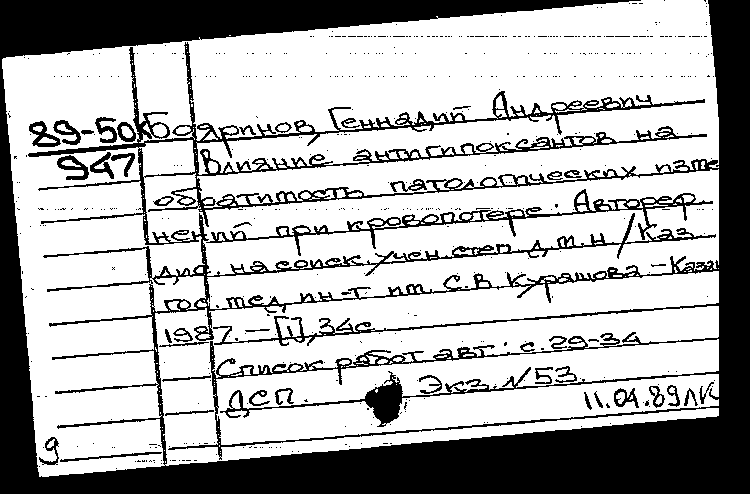 89-50к Бояринов, Геннадий Андреевич
947 Влияние антигипоксантов на
обратимость патологических изме
нений при кровопотере: Автореф.
дис. на соиск. учен. степ. д.м.н / Каз.
гос. мед. ин-т им. С.В. Курашова – Казан
1987. – [1], 34с
Список работ авт.: с. 29-34
ДСП. Экз. N 53.
11.04.89 ЛК
9